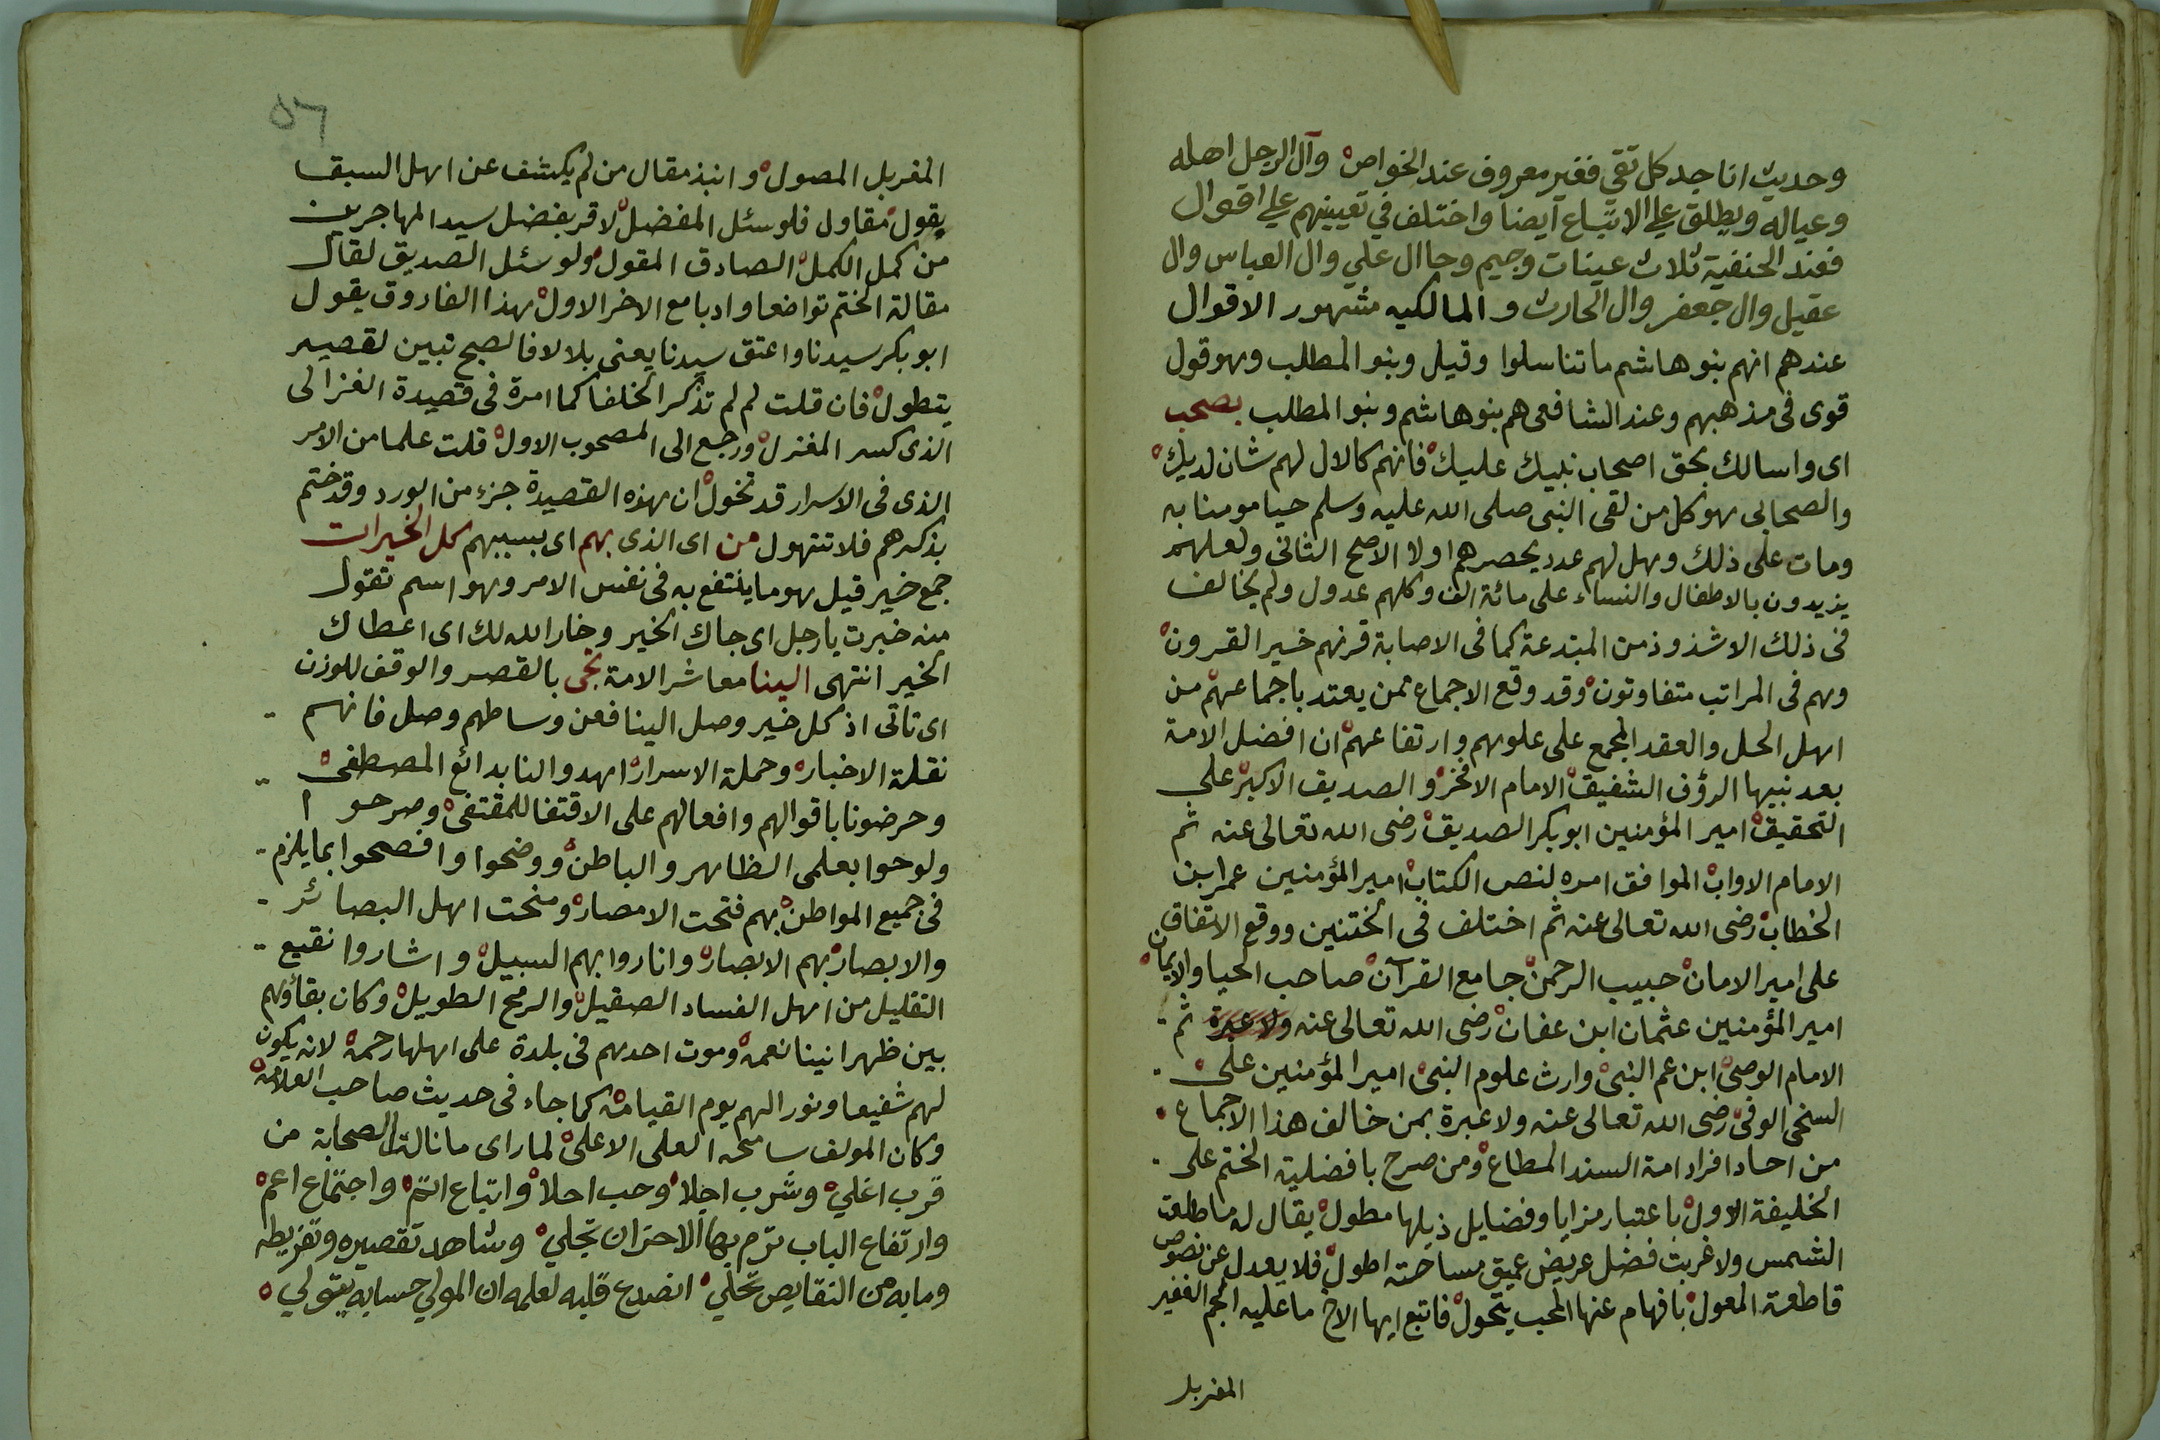 وحديث انا جد كل تقي فغير معروف عند الخواص وآل الرجل اهله
وعياله ويطلق على الاتباع ايضا واختلف في تعيينهم على اقوال
فعند الحنفية ثلاث عينات وجيم وحا ال علي وال العباس وال
عقيل وال جعفر وال الحارث والمالكيه مشهور الاقوال
عندهم انهم بنو هاشم ما تناسلوا وقيل وبنو المطلب وهو قول
قوى فى مذهبهم وعند الشافعى هم بنو هاشم وبنو المطلب بصحب
اى واسالك بحق اصحاب نبيك عليك فانهم كالال لهم شان لديك
والصحابى هو كل من لقى النبى صلى الله عليه وسلم حيا مومنا به
ومات على ذلك وهل لهم عدد يحصرهم اولا الاصح الثانى ولعلهم
يزيدون بالاطفال والنساء على مائة الف وكلهم عدول ولم يخالف
فى ذلك الا شذوذ من المبتدعة كما فى الاصابة قرنهم خير القرون
وهم فى المراتب متفاوتون وقد وقع الاجماع ممن يعتد باجماعهم من
اهل الحل والعقد المجمع على علوهم وارتفاعهم ان افضل الامة
بعد نبيها الرؤف الشفيق الامام الافخر والصديق الاكبر على
التحقيق امير المؤمنين ابو بكر الصديق رضى الله تعالى عنه ثم
الامام الاواب الموافق امره لنص الكتاب امير المؤمنين عمر ابن
الخطاب رضى الله تعالى عنه ثم اختلف فى الختنين ووقع الاتفاق
على امير الامان حبيب الرحمن جامع القرآن صاحب الحيا والايمان
امير المؤمنين عثمان ابن عفان رضى الله تعالى عنه ولا عبرة ثم
الامام الوصى ابن عم النبى وارث علوم النبى امير المؤمنين على
السخى الوفى رضى الله تعالى عنه ولا عبرة بمن خالف هذا الاجماع
من احاد افراد امة السند المطاع ومن صرح بافضلية الختم على
الخليفة الاول باعتبار مزايا وفضايل ذيلها مطول يقال له ما طلعت
الشمس ولا غربت فضل عريض عميق مساحته اطول فلا يعدل عن نصوص
قاطعة المعول بافهام عنها المحب يتحول فاتبع ايها الاخ ما عليه الجم الغفير
المغربل
٥٦
المغربل المصول وانبذ مقال من لم يكشف عن اهل السبقا
يقول مقاول فلو سئل المفضل لاقر بفضل سيد المهاجرين
من كمل الكمل الصادق المقول ولو سئل الصديق لقال
مقالة الختم تواضعا وادبا مع الاخر الاول بهذا الفاروق يقول
ابو بكر سيدنا واعتق سيدنا يعنى بلالا فالصبح تبين لقصير
يتطول فان قلت لم لم تذكر الخلفا كما امرة فى قصيدة الغزالى
الذى كسر المغزل ورجع الى المصحوب الاول قلت علما من الامر
الذى فى الاسرار قد تخول ان هذه القصيدة جزء من الورد وقد ختم
بذكرهم فلا تتهول من اى الذى بهم اى بسببهم كل الخيرات
جمع خير قيل هو ما ينتفع به فى نفس الامر وهو اسم تقول
منه خبرت يا رجل اى جاك الخير وخار الله لك اى اعطاك
الخير انتهى الينا معاشر الامة تجى بالقصر والوقف للوزن
اى تاتى اذ كل خير وصل الينا فعن وساطهم وصل فانهم
نقلة الاخبار وحملة الاسرار اهدوا لنا بدائع المصطفى
وحرضونا باقوالهم وافعالهم على الاقتفا للمقتفى وصرحوا
ولوحوا بعلمى الظاهر والباطن ووضحوا وافصحوا بما يلزم
فى جميع المواطن بهم فتحت الامصار ومنحت اهل البصائر
والابصار بهم الابصار وانار وا بهم السبيل واشاروا نقيع
التقليل من اهل الفساد الصقيل والرمح الطويل وكان بقاؤهم
بين ظهرانينا نعمة وموت احدهم فى بلدة على اهلها رحمة لانه يكون
لهم شفيعا ونورا لهم يوم القيامة كما جاء فى حديث صاحب العلامة
وكان المولف سامحه العلى الاعلى لما راى ما نالته الصحابة من
قرب اغلي وشرب اجلا وحب احلا واتباع اتم واجتماع اعم
وارتفاع الباب ترم بها الاحزان تجلي وشاهد تقصيره وتفريطه
وما به من النقايص تحلي انصدع قلبه لعلمه ان المولي حسابه يتولي